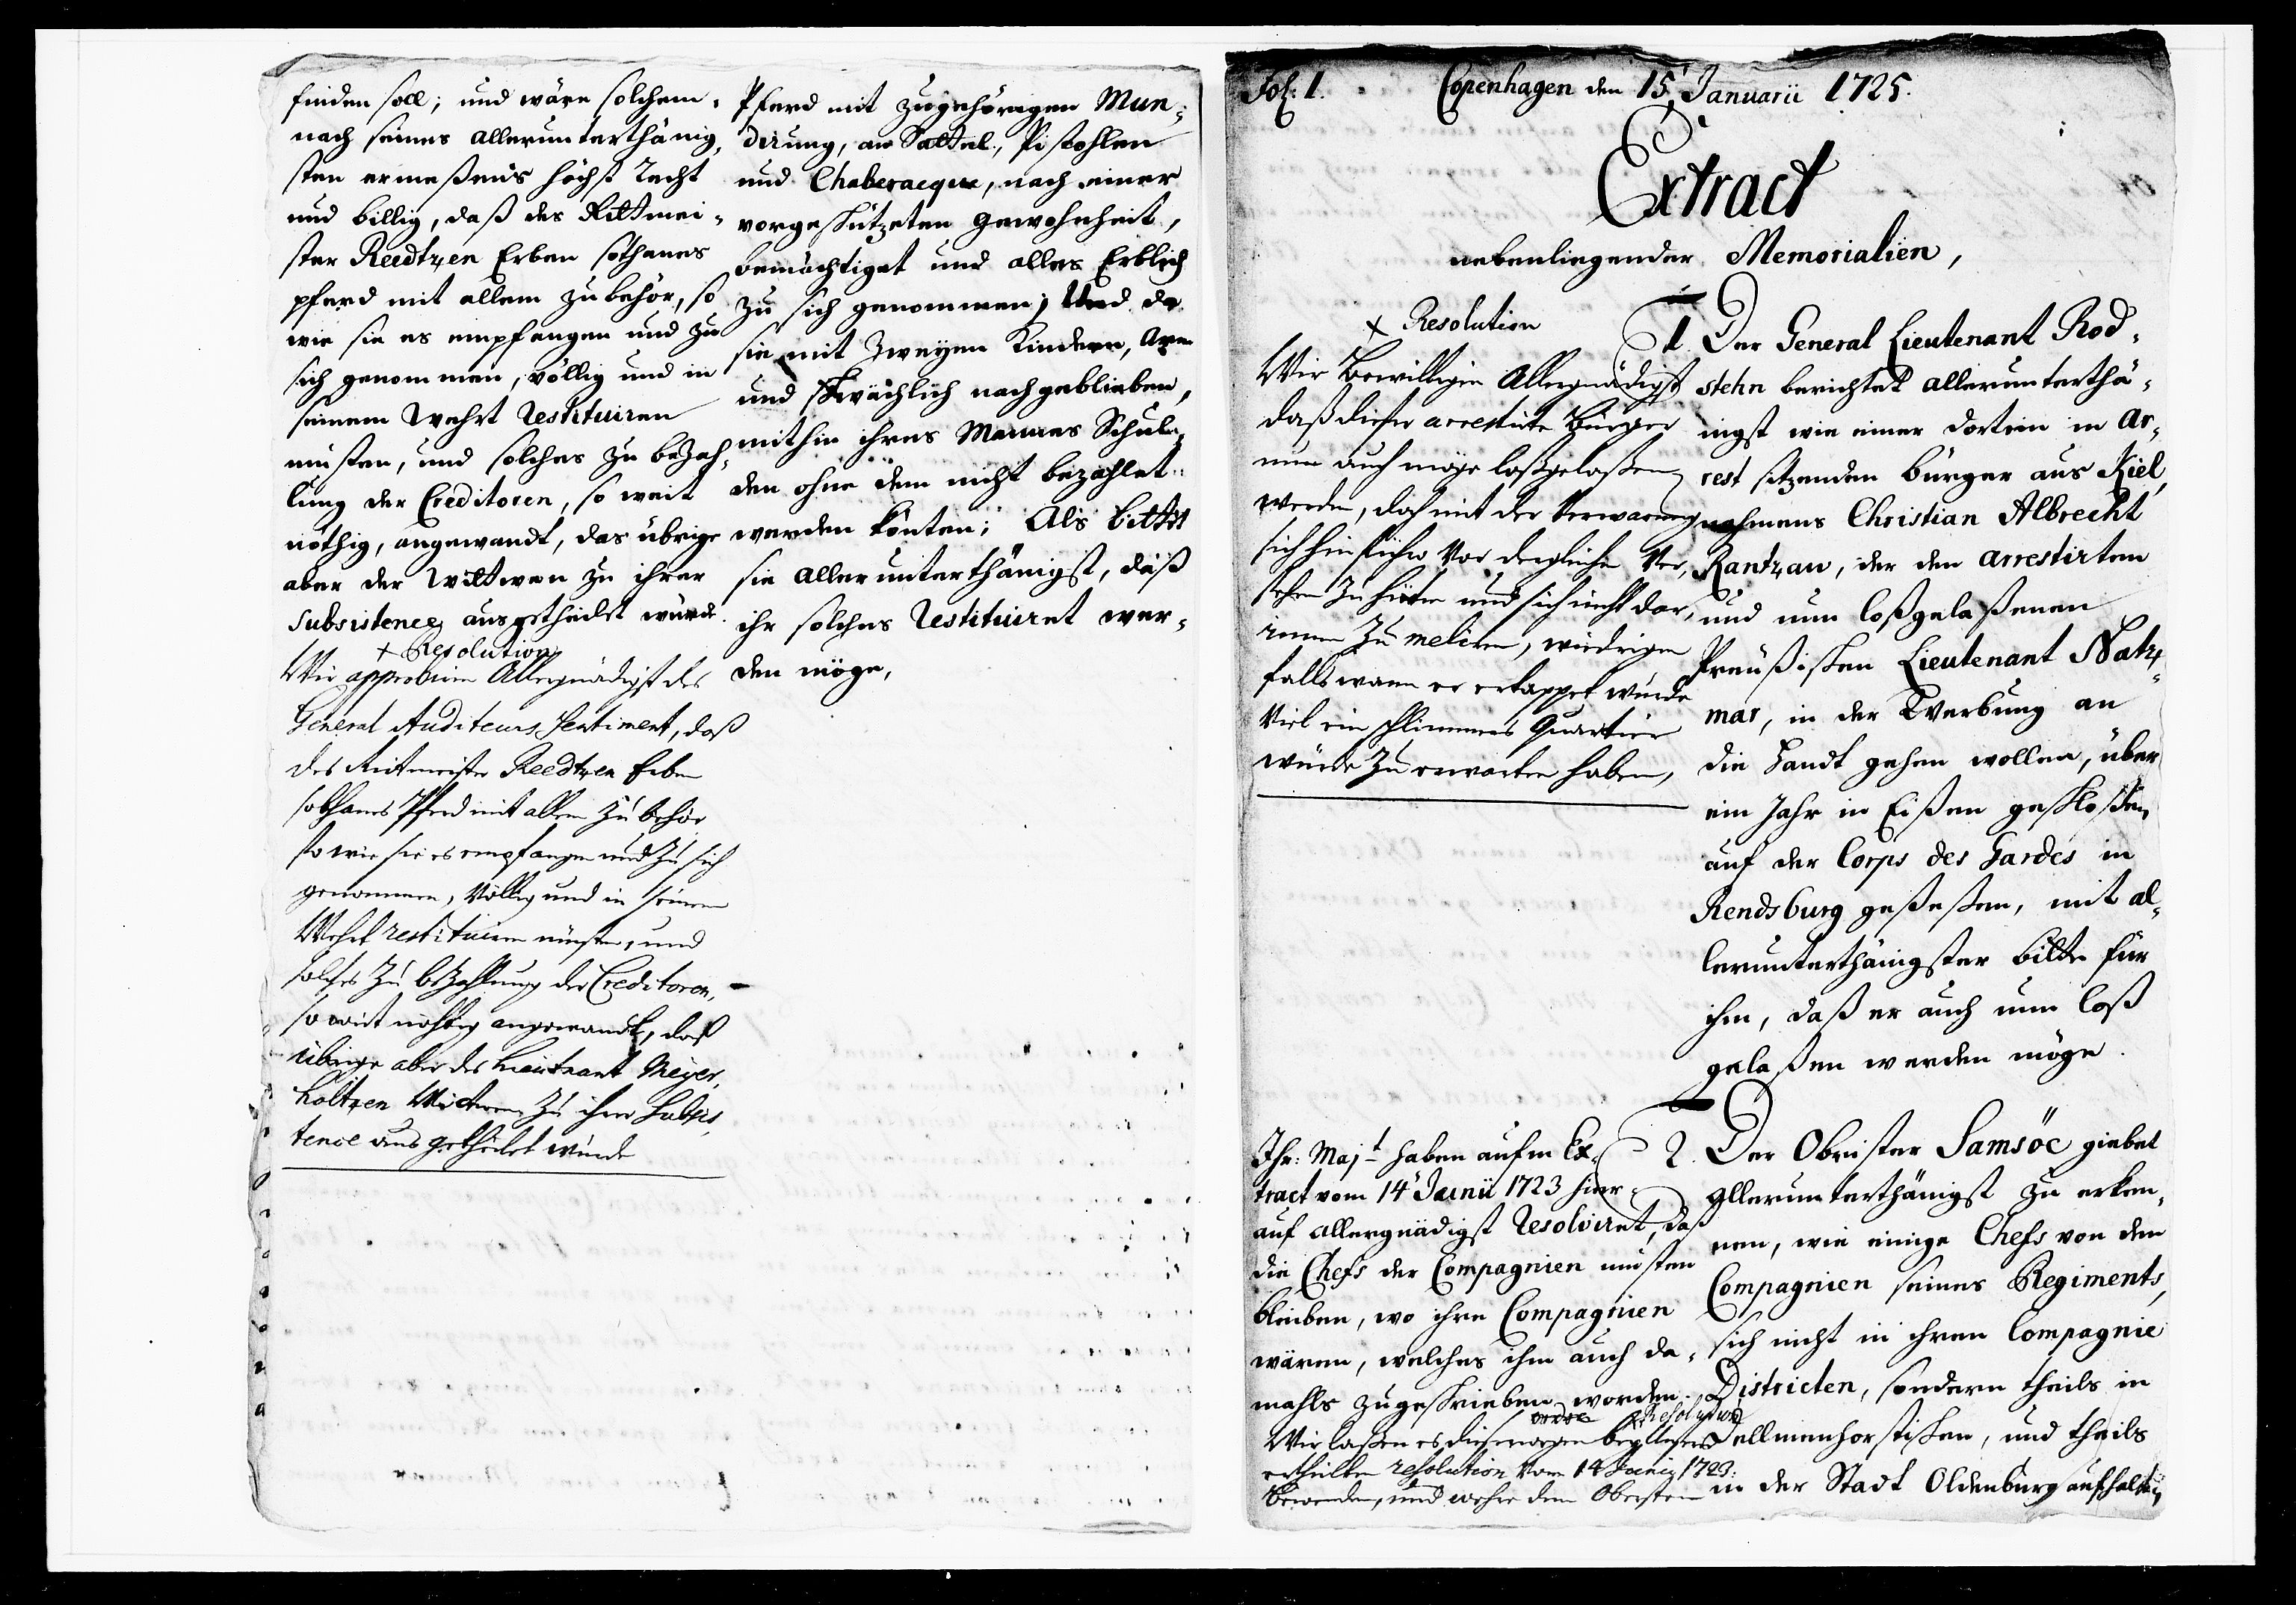 finden soll; und wäre solchem
nach seines allerunterthänig,
sten ermeßens höchst recht
und billig, daß des Rittmei-
ster Reedtzen Erben sothanes
pferd mit allem zubehör, so
wie sie es empfangen und zu
sich genommen, völlig und in
seinem Wehrt restituiren
müsten, und solches zu bezah-
lung der Creditoren, so weit
nöthig, angewandt, das übrige
aber der Wittwen zu ihrer
Subsistence ausgetheilet würde.
+ Resolution
Wir approbiren Allergnädigst des
General Auditeurs Sentiment, daß
des Rittmeister Reedtzen Erben
sothanes Pferd mit allem Zubehör
so wie sie es empfangen und zu sich
genommen, Völlig und in seinem
Wehrt restituiren müsten, und
solches zu bezahlung der Creditoren,
so weit nöhtig angewandt, daß
übrige aber des Lieutnant Meyer,
holtzen Witwen zu ihrer Subsis,
tence aus getheilet würde
Pferd mit zugehörigen Mun-
dirung, an Sattel, Pistohlen
und Chaberacque, nach einer
vorgeschützeten gewohnheit,
bemächtiget und alles Erblich
zu sich genommen; Und da
sie mit zweyen Kindern, arm
und schwächlich nachgeblieben,
mithin ihres Mannes Schul-
den ohne dem nicht bezahlet
werden könten; Als bittet
sie allerunterthänigst, daß
ihr solches restituiret wer-
den möge,
Fol: 1. Copenhagen den 15 Januarii 1725.
Extract
nebenliegender Memorialien,
+ Resolution
Wir Bewilligen Allergnädigst
daß dieser arrestirte Bürger
nun auch möge loßgelaßen
werden, doch mit der Verwarnung
sich hinführo Vor dergleichen Ver,
sehen zu hüten und sich nicht dar,
innen zu meliren, wiedrigen
falls wann er ertappet würde
Viel ein schlimmeres Quartier
würde zu erwarten haben,
1. Der General Lieutenant Rod-
stehn berichtet allerunterthä-
nigst wie einer dorten in Ar-
rest sitzenden bürger aus Kiel,
nahmens Christian Albrecht
Rantzau, der den arrestirten
und nun loßgelaßenen
Preüßischen Lieutenant Natz-
mar, in der Werbung an
die Handt gehen wollen, über
ein Jahr in Eißen geschloßen,
auf der Corps des Gardes in
Rendsburg geseßen, mit al-
lerunterthänigster bitte für
ihm, daß er auch nun loß
gelaßen werden möge.
Ihr: Majt haben aufm Ex-
tract vom 14 Junii 1723 hier-
auf allergnädigst resolviret, daß
die Chefs der Compagnien müsten
bleiben, wo ihre Compagnien
wären, welches ihm auch da-
mahls zugeschrieben worden.
+ Resolution
Wir laßen es dieserwegen bey unser
ertheilten resolution vom 14 Junii 1723.
bewenden, und wehre dem Obersten
2. Der Obrister Samsöe giebet
allerunterthänigst zu erken-
nen, wie einige Chefs von den
Compagnien seines Regiments,
sich nicht in ihren Compagnie
Districten, sondern theils in
Dellmenhorstischen, und theils
in der Stadt Oldenburg aufhalten,